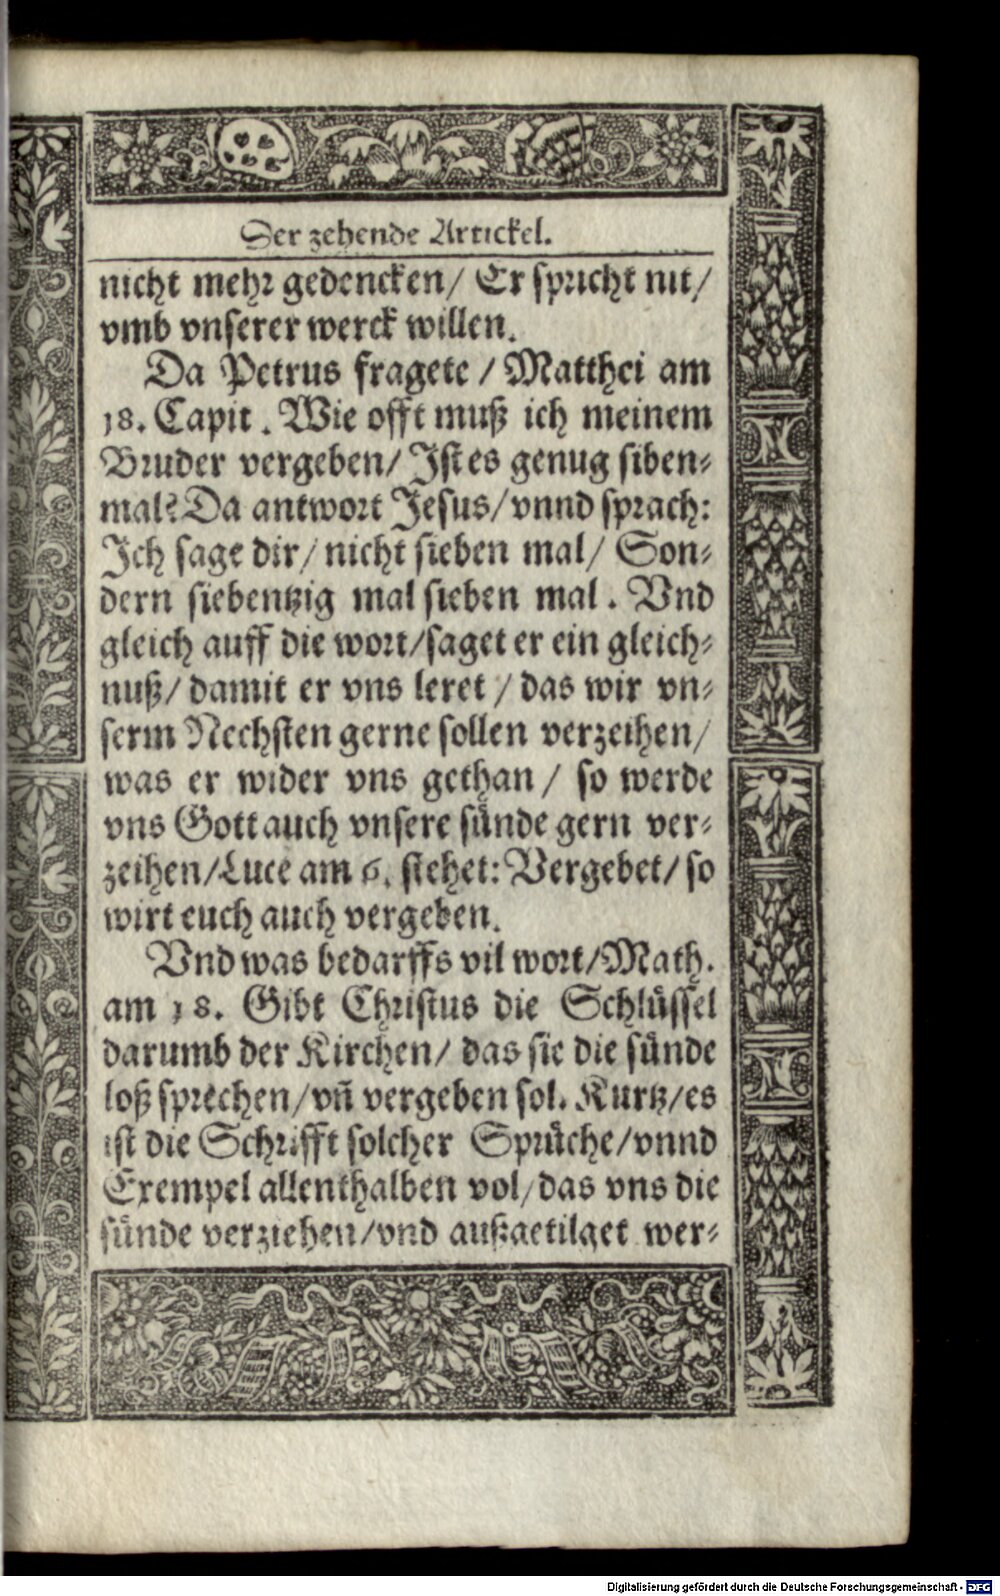 Der zehende Artickel.
nicht mehr gedencken/ Er spricht nit/
vmb vnserer werck willen.
Da Petrus fragete / Matthei am
18. Capit. Wie offt muß ich meinem
Bruder vergeben/ Ist es genug siben⸗
mal? Da antwort Jesus/ vnnd sprach:
Ich sage dir/ nicht sieben mal/ Son⸗
dern siebentzig mal sieben mal. Vnd
gleich auff die wort/ saget er ein gleich⸗
nuß/ damit er vns leret / das wir vn⸗
serm Nechsten gerne sollen verzeihen/
was er wider vns gethan / so werde
vns Gott auch vnsere sünde gern ver⸗
zeihen/ Luce am 6. stehet: Vergebet/ so
wirt euch auch vergeben.
Vnd was bedarffs vil wort/ Math.
am 18. Gibt Christus die Schlüssel
darumb der Kirchen/ das sie die sünde
loß sprechen/ vñ vergeben sol. Kurtz/ es
ist die Schrifft solcher Sprüche/ vnnd
Exempel allenthalben vol/ das vns die
sünde verziehen/ vnd außgetilget wer⸗
Digitalisierung gefördert durch die Deutsche Forschungsgemeinschaft - DFG